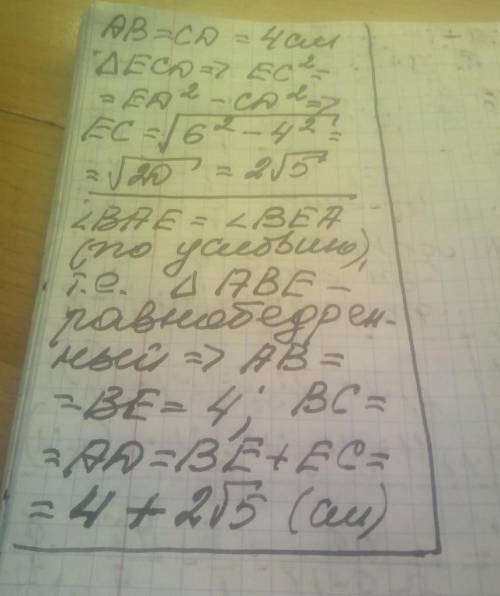 AB=CD = 4см
ΔECD=> EC²=
=ED²-CD²=>
EC=√6²-4²=
=√20 = 2√5
∠BAE = ∠BEA
(по условию),
т.е. Δ ABE -
равнобедрен-
ный => AB=
=BE=4; BC=
=AD=BE+EC=
=4+2√5 (см)